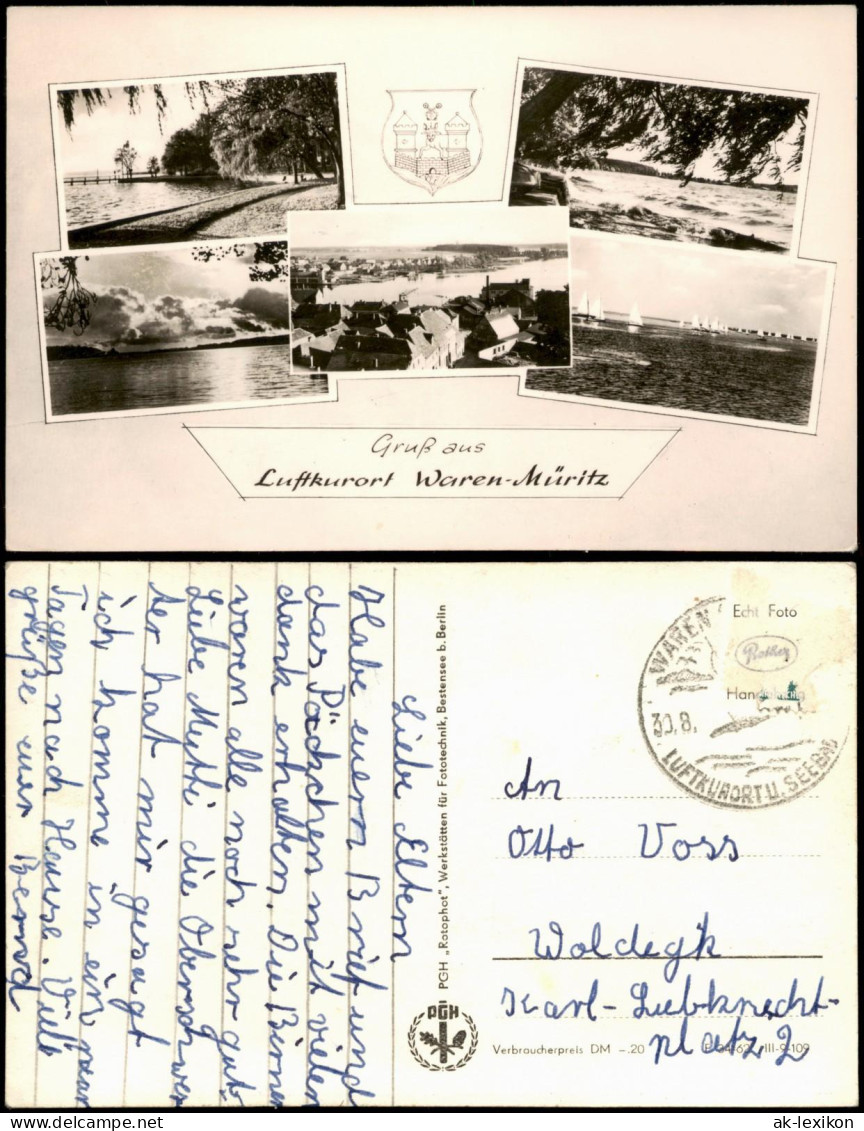 Gruß aus
Luftkurort Waren-Müritz
Liebe Eltern
Habe euern Brief und
das Päckchen mit vielen
dank erhalten. Die Birnen
waren alle noch sehr gut.
Liebe Mutti die Oberschwes
ter hat mir gesagt
ich komme in ein paar
Tagen nach Hause. Viele
grüße euer Bernd
PGH „Rotophot", Werkstätten für Fototechnik, Bestensee b. Berlin
PGH
WAREN
30.8.
LUFTKURORT U. SEEBAD
Echt Foto
An
Otto Voss
Woldegk
Karl-Liebknecht-
platz 2
Verbraucherpreis DM -.20
III-9-109
ak-lexikon